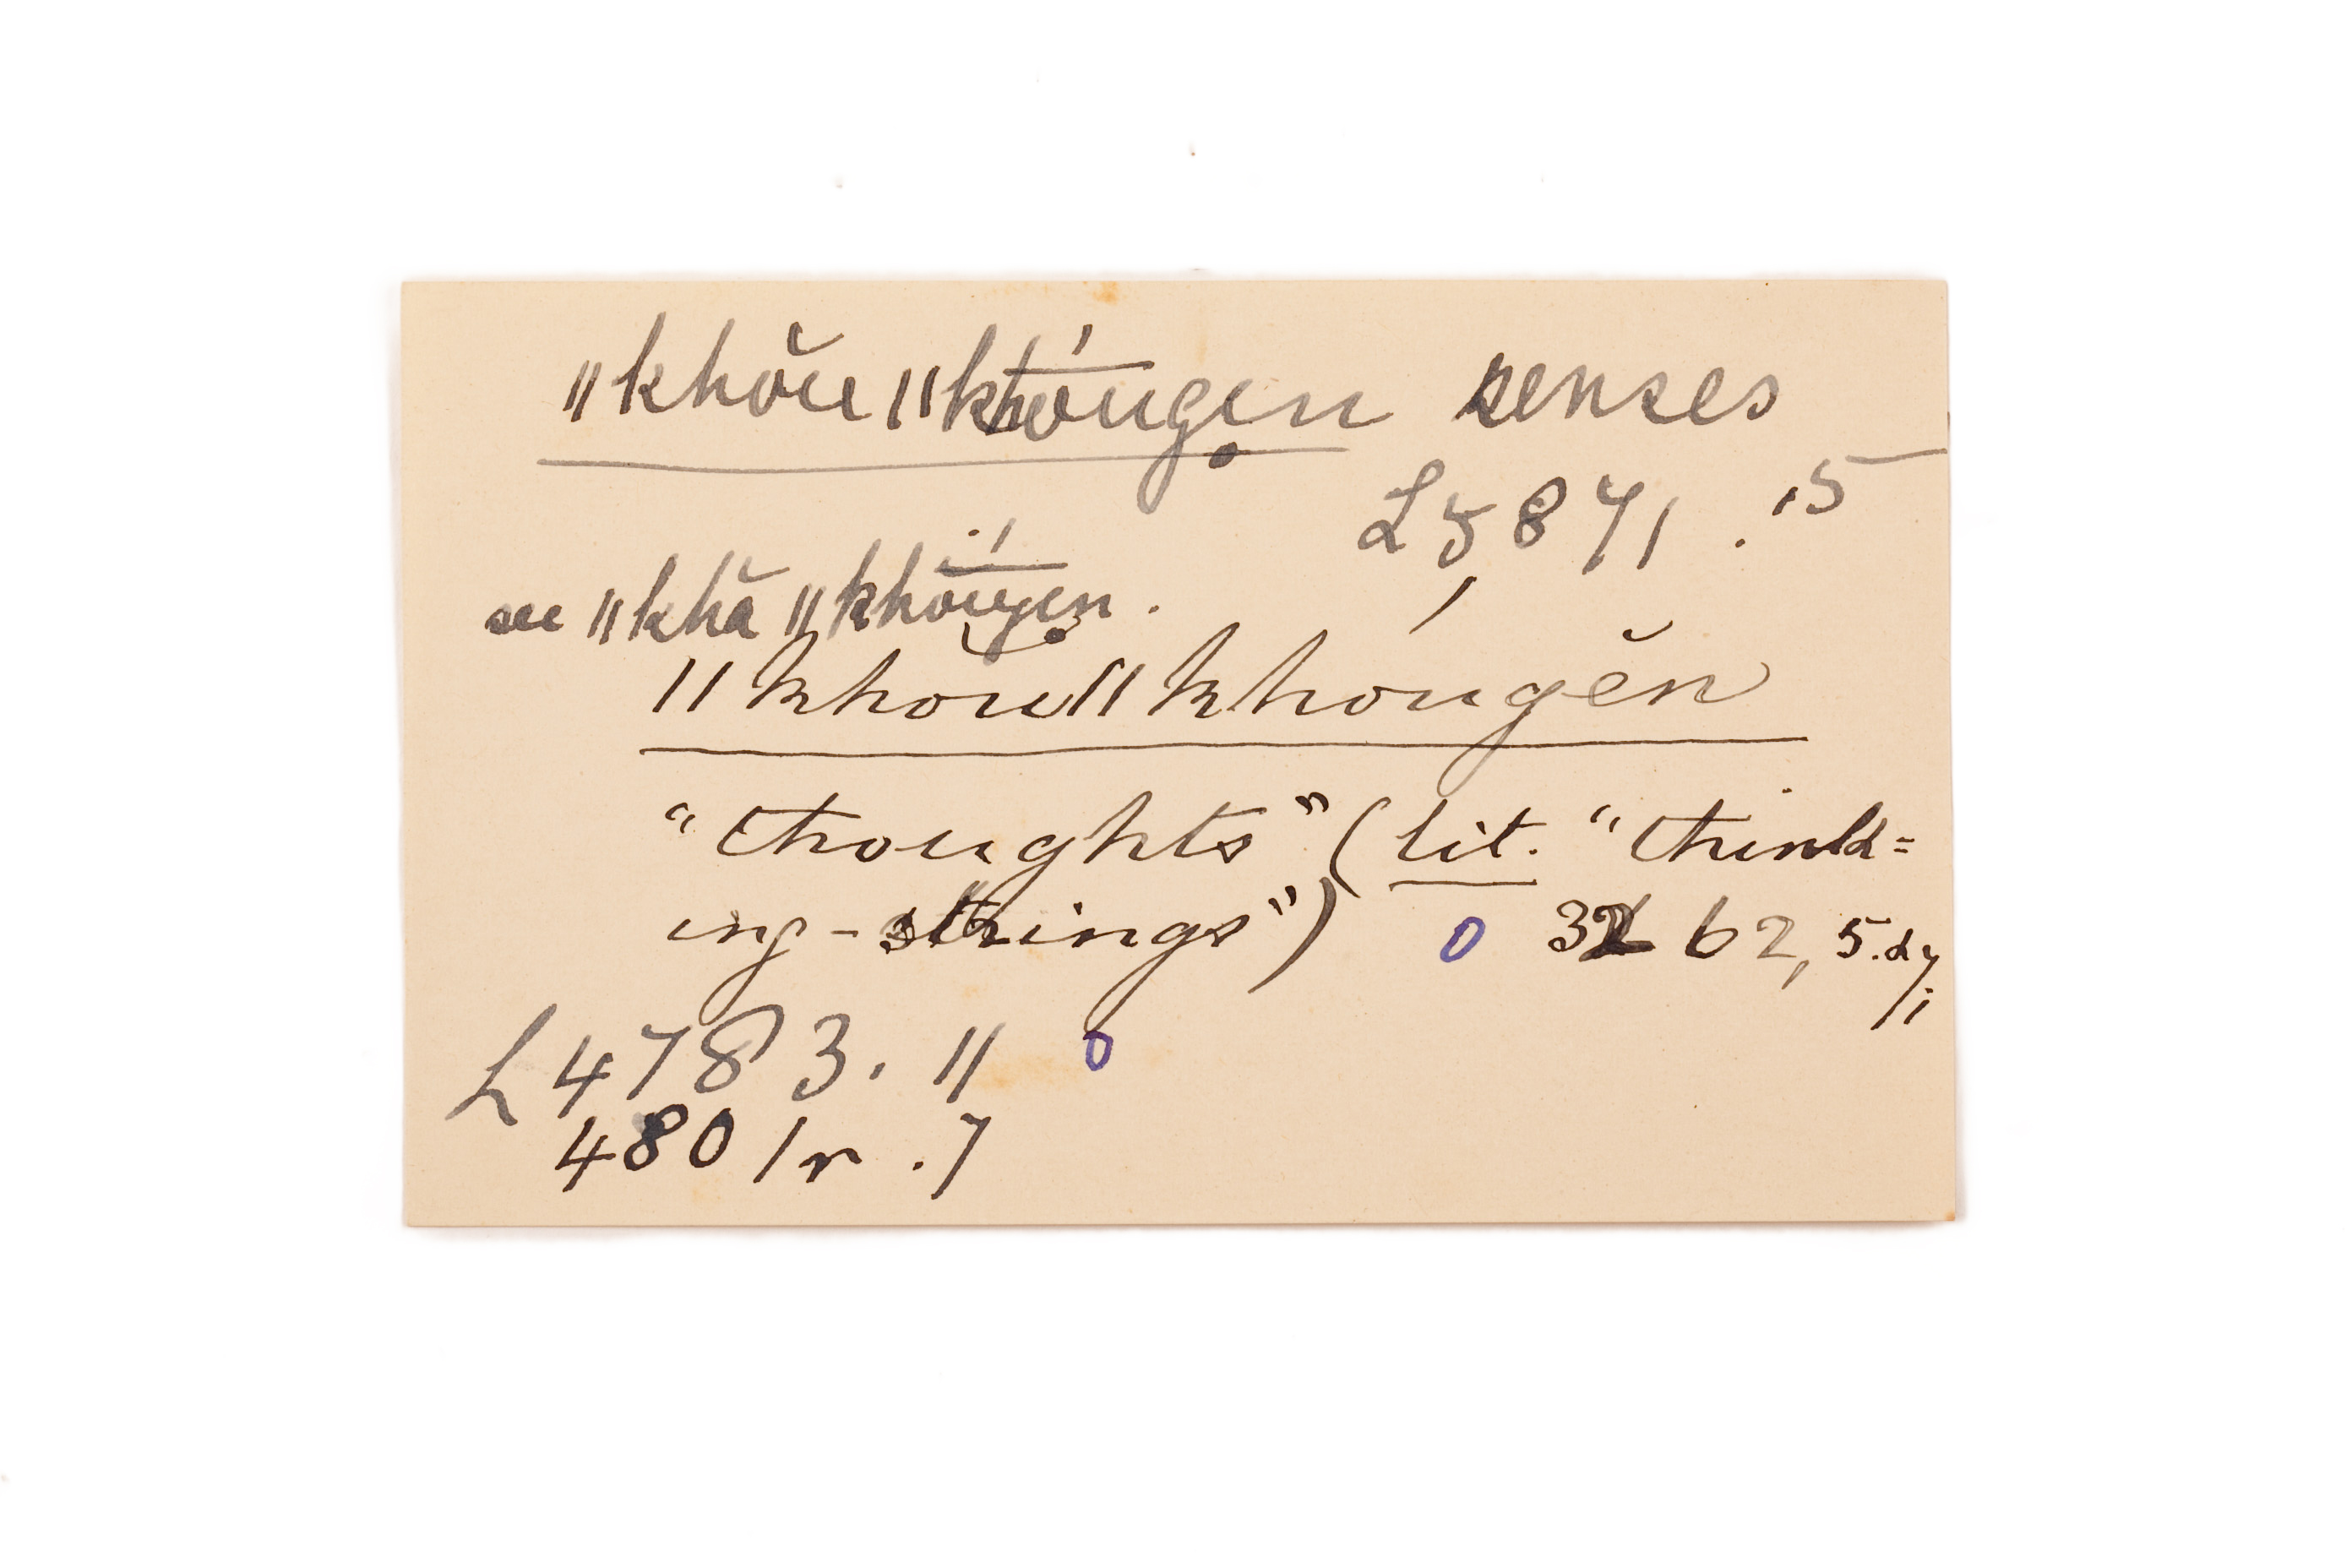 ǁkhŏu ǁkhṓugẹn senses
L 5,871 . 15
see ǁkhă ǁkhṓugẹn.
ǁkhŏuǁkhóugĕn
"thoughts" (lit. "think=
ing-strings") 0 3262, 5.
L 4783. 11 0
4801r .7